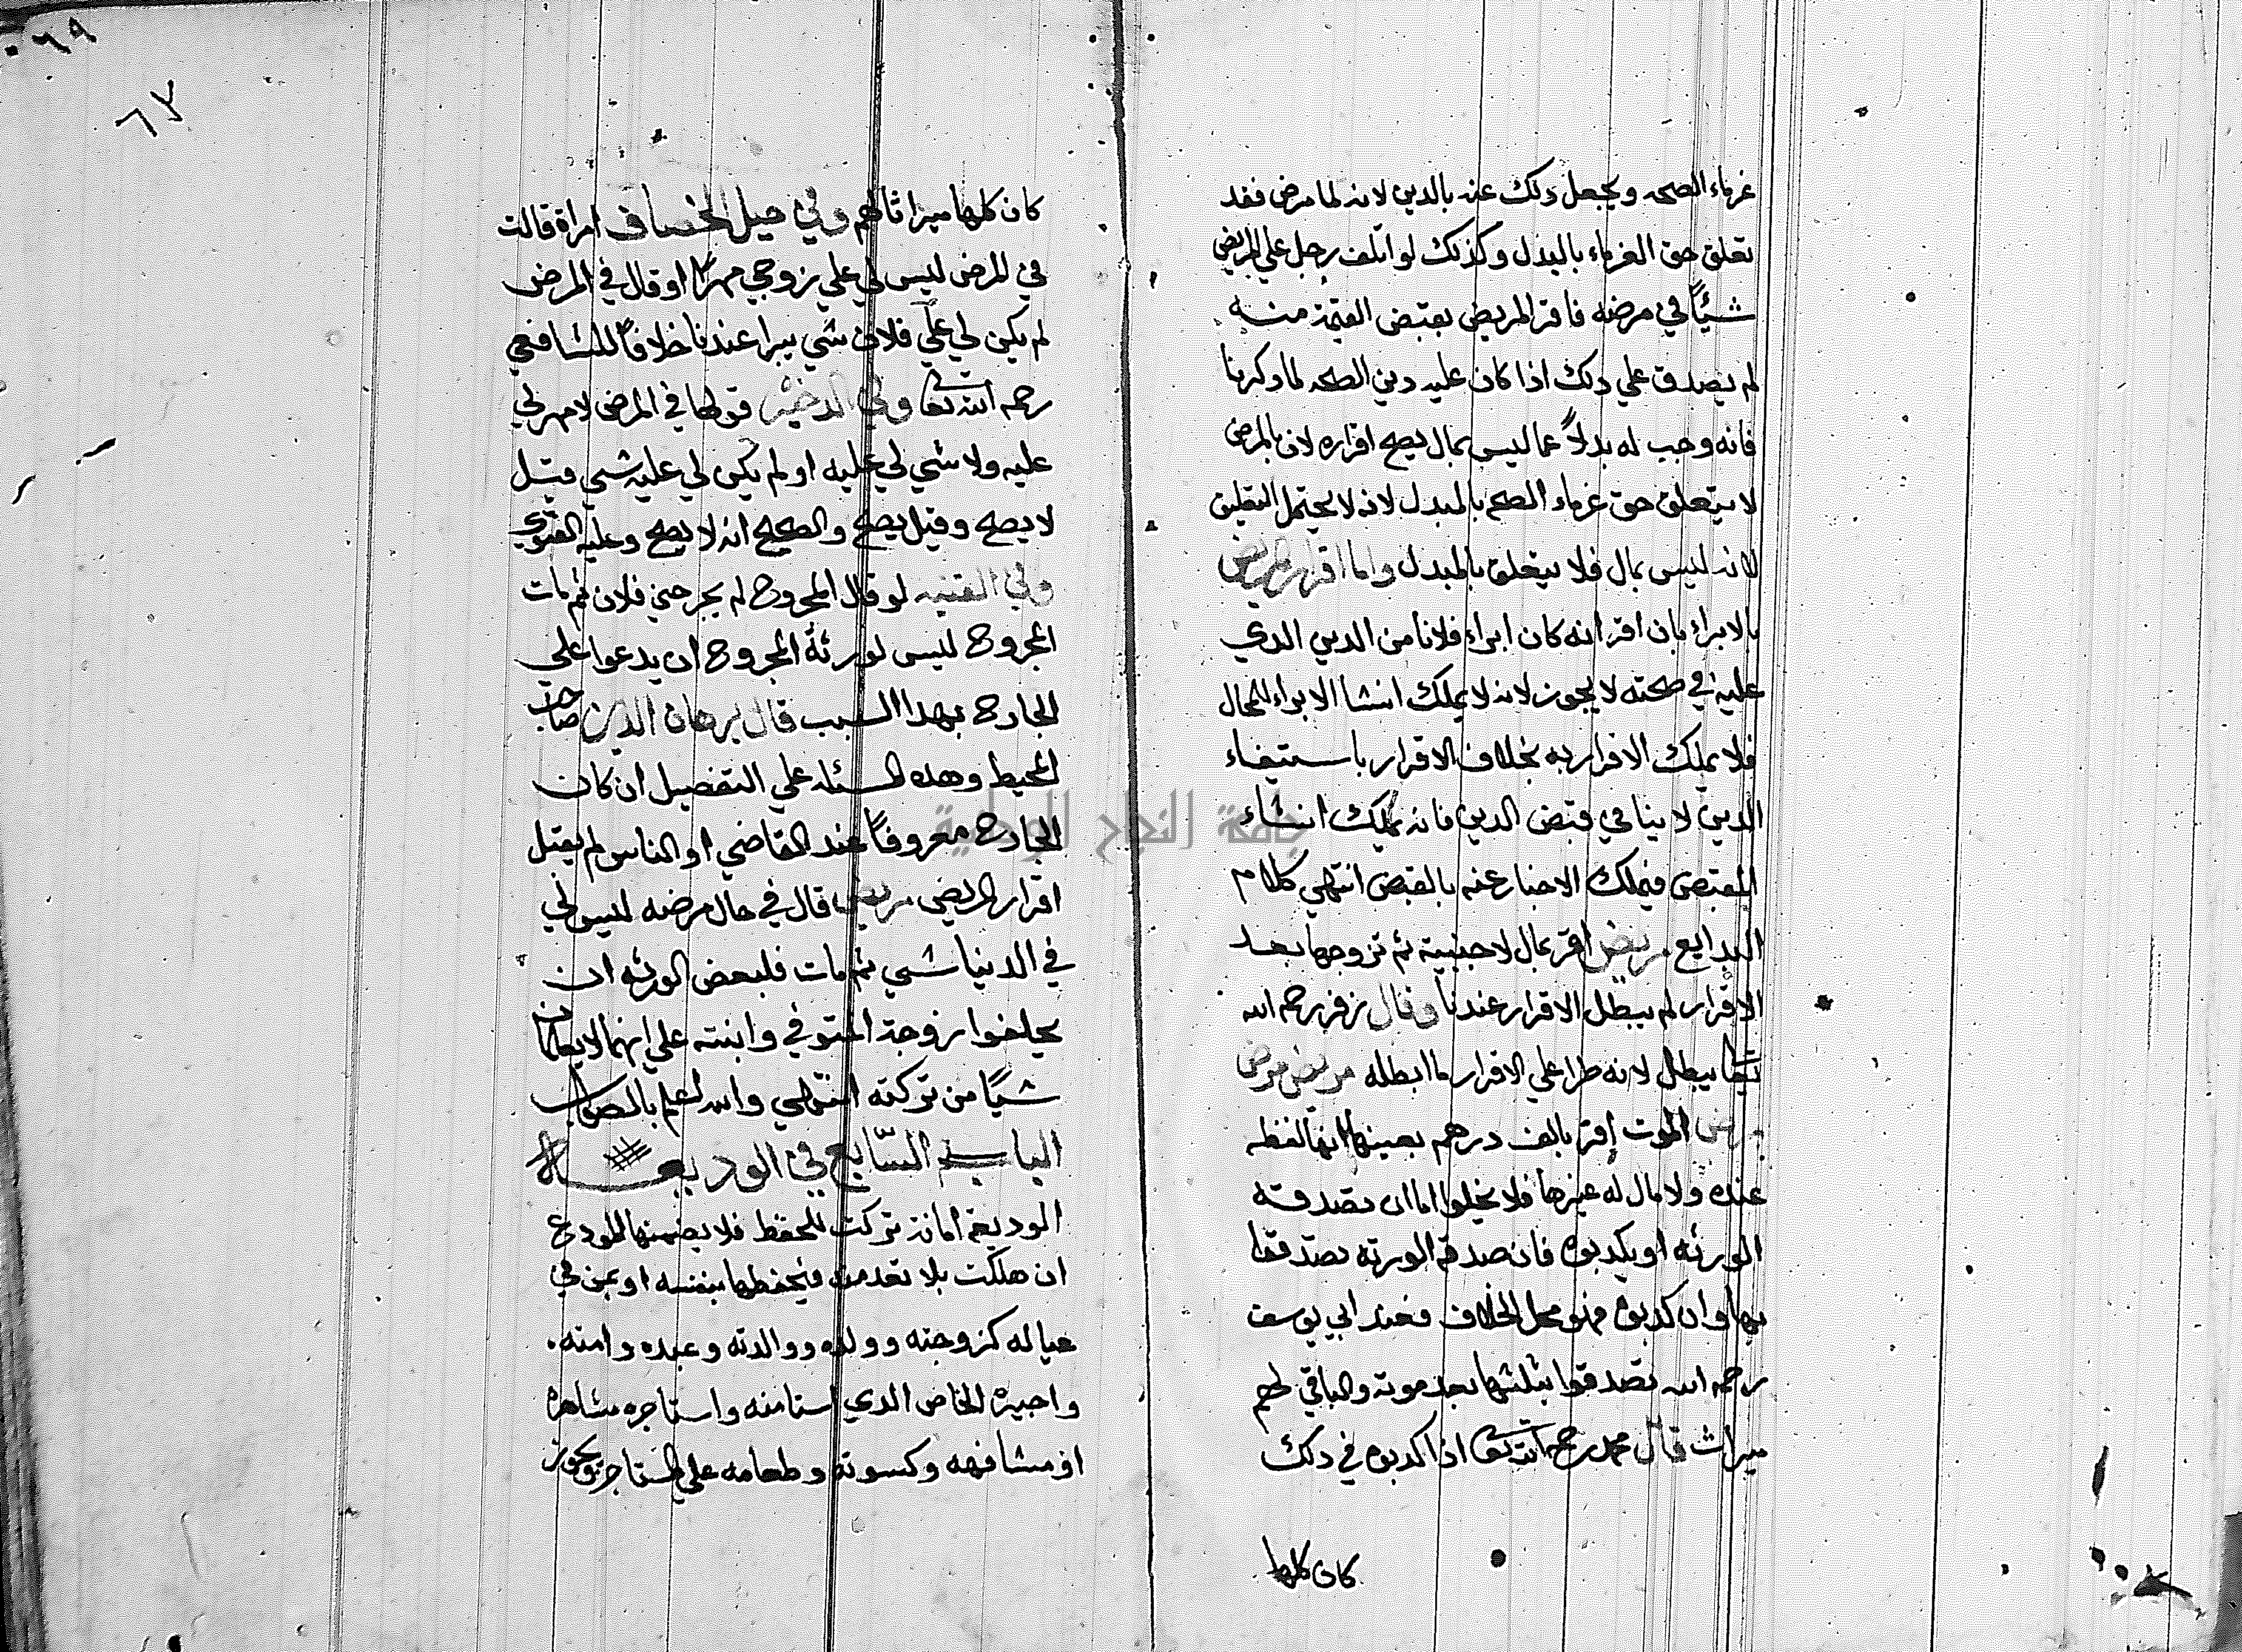 غرماء الصحه ويجعل ذلك عنه بالدين لانه لما مرض فقد
تعلق حق الغرماء بالبدل وكذلك لو اتلف رجل علي المريض
شيئاً في مرضه فاقر المريض بقبض القيمة منه
لم يصدق علي ذلك اذا كان عليه دين الصحه لما ذكرنا
فانه وجب له بدلاً عما ليس بمال يصح اقراره لان بالمرض
لا يتعلق حق غرماء الصحه بالمبدل لانه لا يحتمل التعليق
لانه ليس بمال فلا يتعلق بالمبدل واما اقرار المريض
بالابراء بان اقر انه كان ابراء فلانا من الدين الذي
عليه في صحته لا يجوز لانه لا يملك انشا الابراء للحال
فلا يملك الاقرار به بخلاف الاقرار باستيفاء
الدين لا ينافي قبض الدين فانه يملك انشاء
القبض فيملك الاخبار عنه بالقبض انتهي كلام
البدايع مريض اقر بمال لاجنبية ثم تزوجها بعد
الاقرار لم يبطل الاقرار عندنا وقال زفر رحمه الله
تعا يبطل لانه طرا علي الاقرار ما ابطله مريض مرض
مرض الموت اقر بالف درهم بعينها انها لقطه
عنده ولا مال له غيرها فلا يخلوا اما ان تصدقه
الورثه او يكذبوه فان صدقه الورثه تصدقوا
بها وان كذبوه فهو محل الخلاف فعند ابي يوسف
رحمه الله تصدقوا بثلثها بعد موته والباقي لهم
ميراث قال محمد رحمه الله تعا اذا كذبوه في ذلك
كان كلها
٠٦٩
٦٧
كان كلها ميراثا لهم وفي حيل الخصاف امراة قالت
في المرض ليس لي علي زوجي مهراً او قال في المرض
لم يكن لي علي فلان شي يبرا عندنا خلافاً للشافعي
رحمه الله تعا وفي الذخيره قولها في المرض لا مهر لي
عليه ولا شي لي عليه او لم يكن لي عليه شي قيل
لا يصح وقيل يصح والصحيح انه لا يصح وعليه الفتوي
وفي القنيه لو قال المجروح لم يجرحني فلان ثم مات
المجروح ليس لورثة المجروح ان يدعوا علي
الجارح بهذا السبب قال برهان الدين صاحب
المحيط وهذه المسئله علي التفصيل ان كان
الجارح معروفاً عند القاضي او الناس لم يقبل
اقرار المريض مريض قال في حال مرضه ليس لي
في الدنيا شي ثم مات فلبعض الورثه ان
يحلفوا زوجة المتوفي وابنته علي انهما لا يعلمان
شيًا من تركته انتهي والله اعلم بالصواب
الباب السّابع في الوديعه
الوديعة امانة تركت للحفظ فلا يضمنها المودع
ان هلكت بلا تعد منه فيحفظها بنفسه او بمن في
عياله كزوجته وولده ووالدته وعبده وامته
واجيره الخاص الذي استامنه واستاجره مشاهرة
او مشافهه وكسوته وطعامه علي المستاجر ويجوز
جامعة النجاح الوطنية